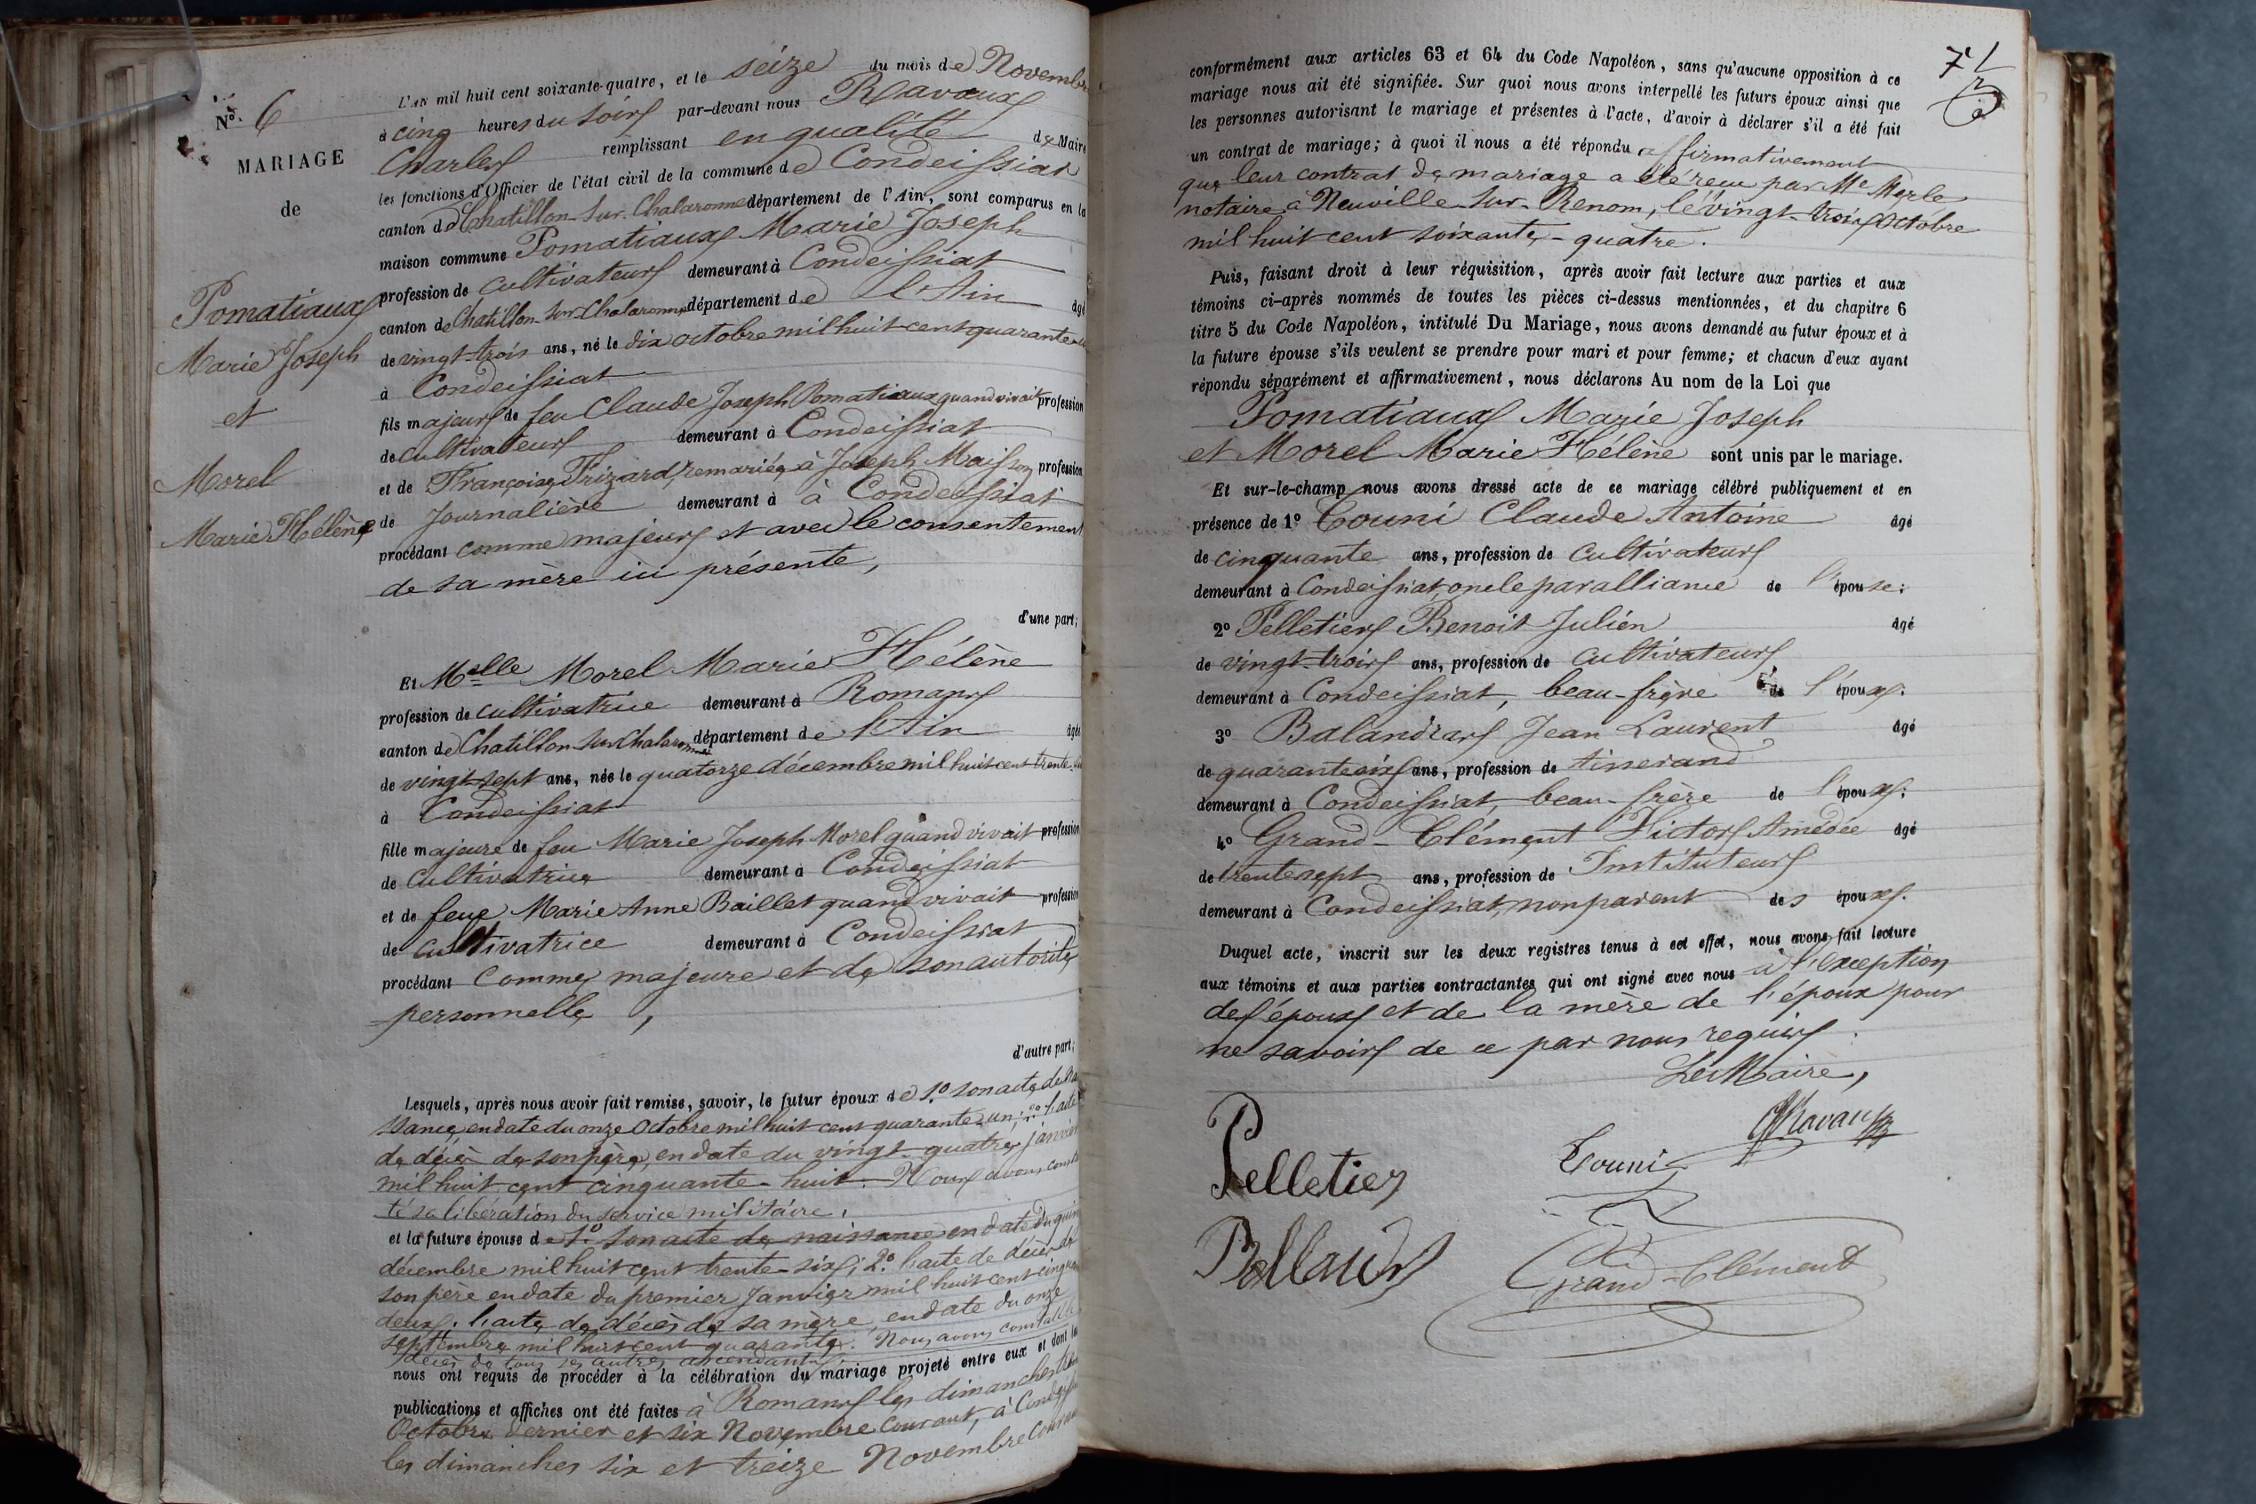 N° 6
MARIAGE
de
Pomatiaux
Marie Joseph
et
Morel
Marie Hélène
L'AN mil huit cent soixante-quatre, et le seize du mois de Novembre
à cinq heures du soir par-devant nous Ravoux
Charles remplissant en qualité de Maire
les fonctions d'Officier de l'état civil de la commune de Condeissiat
canton de Chatillon-sur-Chalaronne département de l'Ain, sont comparus en la
maison commune Pomatiaux Marie Joseph
profession de cultivateur demeurant à Condeissiat
canton de Chatillon-sur-Chalaronne département de l'Ain âgé
de vingt-trois ans, né le dix octobre mil huit cent quarante
à Condeissiat
fils majeur de feu Claude Joseph Pomatiaux quand vivait profession
de cultivateur demeurant à Condeissiat
et de Françoise Frizard, remariée à Joseph Maisson profession
de Journalière demeurant à à Condeissiat
procédant comme majeur et avec le consentement
de sa mère ici présente,
d'une part;
Et Melle Morel Marie Hélène
profession de cultivatrice demeurant à Romans
canton de Chatillon sur Chalaronne département de l'Ain âgée
de vingt-sept ans, née le quatorze décembre mil huit cent trente
à Condeissiat
fille majeure de feu Marie Joseph Morel quand vivait profession
de cultivatrice demeurant à Condeissiat
et de feue Marie Anne Baillet quand vivait profession
de cultivatrice demeurant à Condeissiat
procédant comme majeure et de son autorité
personnelle,
d'autre part;
Lesquels, après nous avoir fait remise, savoir, le futur époux de 1° son acte de nais
sance, en date du onze Octobre mil huit cent quarante un; 2° l'acte
de décès de son père, en date du vingt-quatre janvier
mil huit cent cinquante-huit. Nous avons consta
té sa libération du service militaire.
et la future épouse de 1° son acte de naissance en date du quinze
décembre mil huit cent trente-six; 2° l'acte de décès de
son père en date du premier Janvier mil huit cent cinquante
deux. l'acte de décès de sa mère, en date du onze
septembre mil huit cent quarante. Nous avons constaté le
décès de tous ses autres ascendants.
nous ont requis de procéder à la célébration du mariage projeté entre eux et dont les
publications et affiches ont été faites à Romans les dimanches
Octobre dernier et six Novembre courant, à Condeissiat
les dimanches six et treize Novembre courant
conformément aux articles 63 et 64 du Code Napoléon, sans qu'aucune opposition à ce
mariage nous ait été signifiée. Sur quoi nous avons interpellé les futurs époux ainsi que
les personnes autorisant le mariage et présentes à l'acte, d'avoir à déclarer s'il a été fait
un contrat de mariage; à quoi il nous a été répondu affirmativement
que leur contrat de mariage a été reçu par Me Merle
notaire à Neuville-sur-Renom, le vingt-trois Octobre
mil huit cent soixante-quatre.
Puis, faisant droit à leur réquisition, après avoir fait lecture aux parties et aux
témoins ci-après nommés de toutes les pièces ci-dessus mentionnées, et du chapitre 6
titre 5 du Code Napoléon, intitulé Du Mariage, nous avons demandé au futur époux et à
la future épouse s'ils veulent se prendre pour mari et pour femme; et chacun d'eux ayant
répondu séparément et affirmativement, nous déclarons Au nom de la Loi que
Pomatiaux Marie Joseph
et Morel Marie Hélène sont unis par le mariage.
Et sur-le-champ nous avons dressé acte de ce mariage célébré publiquement et en
présence de 1° Touni Claude Antoine âgé
de cinquante ans, profession de cultivateur
demeurant à Condeissiat, oncle par alliance de l'épouse;
2° Pelletier Benoit Julien âgé
de vingt-trois ans, profession de cultivateur
demeurant à Condeissiat, beau-frère de l'époux;
3° Balandras Jean Laurent âgé
de quarante six ans, profession de tisserand
demeurant à Condeissiat, beau-frère de l'époux;
4° Grand-Clément Victor Amédée âgé
de trente sept ans, profession de Instituteur
demeurant à Condeissiat, non parent des époux.
Duquel acte, inscrit sur les deux registres tenus à cet effet, nous avons fait lecture
aux témoins et aux parties contractantes qui ont signé avec nous à l'exception
des époux et de la mère de l'époux pour
ne savoir de ce par nous requis.
Le Maire,
Ravoux
Pelletier
Touni
Grand-Clément